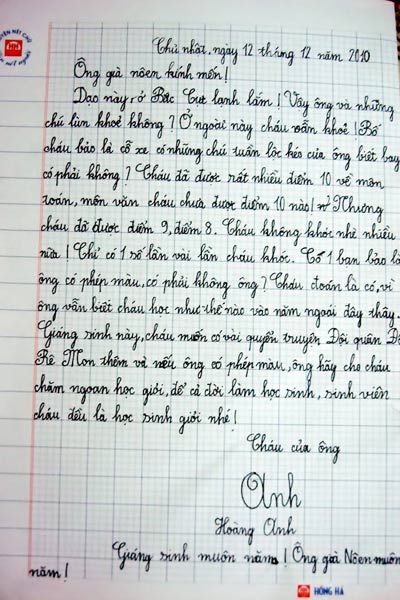 Chủ nhật, ngày 12 tháng 12 năm 2010
Ông già nôen kính mến!
Dạo này, ở Bắc Cực lạnh lắm! Vậy ông và những
chú lùn khoẻ không? Ở ngoài này cháu vẫn khoẻ! Bố
cháu bảo là cỗ xe có những chú tuần lộc kéo của ông biết bay
có phải không? Cháu đã được rất nhiều điểm 10 về môn
toán, môn văn cháu chưa được điểm 10 nào! Nhưng
cháu đã được điểm 9, điểm 8. Cháu không khóc nhè nhiều
nữa! Chỉ có 1 số lần vài lần cháu khóc. Có 1 bạn bảo là
ông có phép màu, có phải không ông? Cháu đoán là có, vì
ông vẫn biết cháu học như thế nào vào năm ngoái đây thây.
Giáng sinh này, cháu muốn có vài quyển truyện Đội quân Đô
Rê Mon thêm và nếu ông có phép màu, ông hãy cho cháu
chăm ngoan học giỏi, để cả đời làm học sinh, sinh viên
cháu đều là học sinh giỏi nhé!
Cháu của ông
Anh
Hoàng Anh
Giáng sinh muôn năm! Ông già Nôen muôn
năm!
HỒNG HÀ